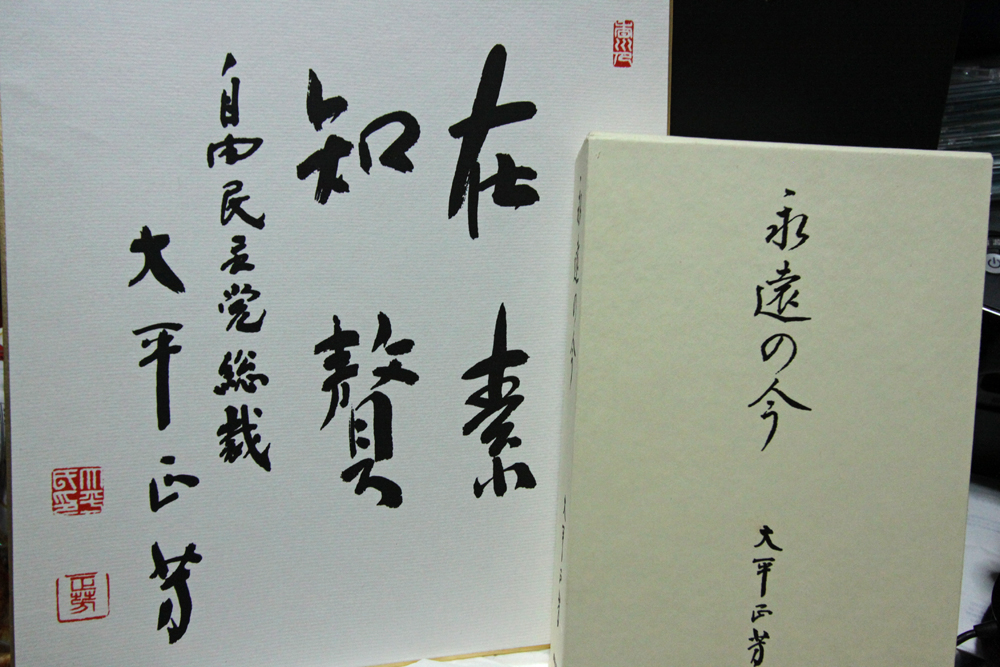 在素
知贅
自由民主党総裁
大平正芳
正芳
永遠の今
大平正芳
永遠の今